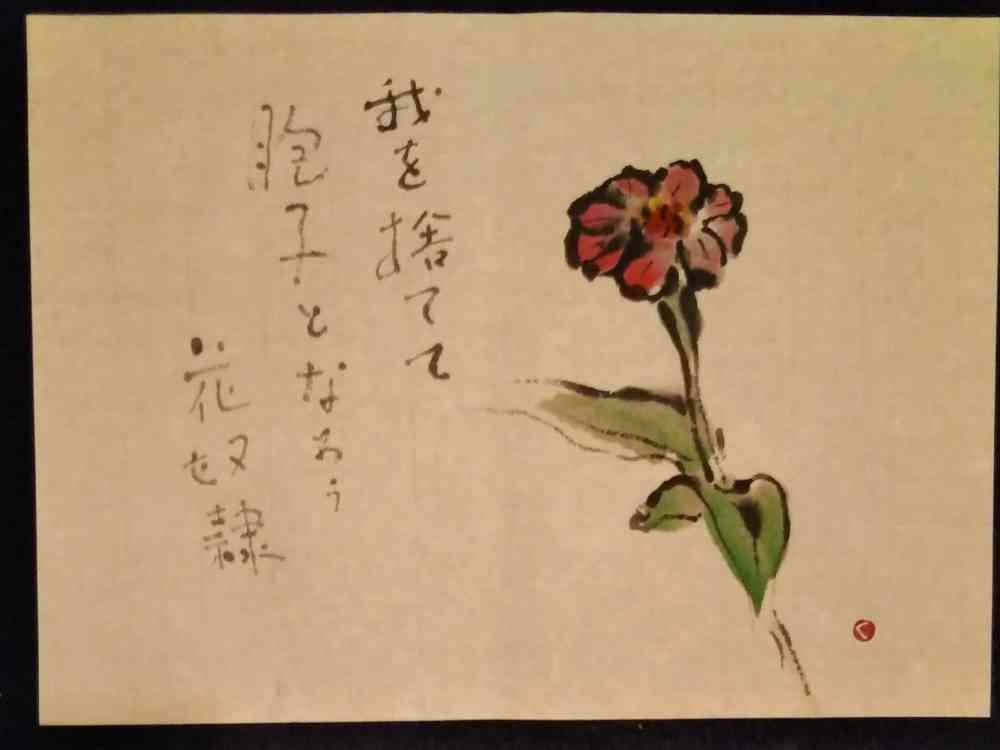 我を捨てて
胞子となろう
花奴隷
く